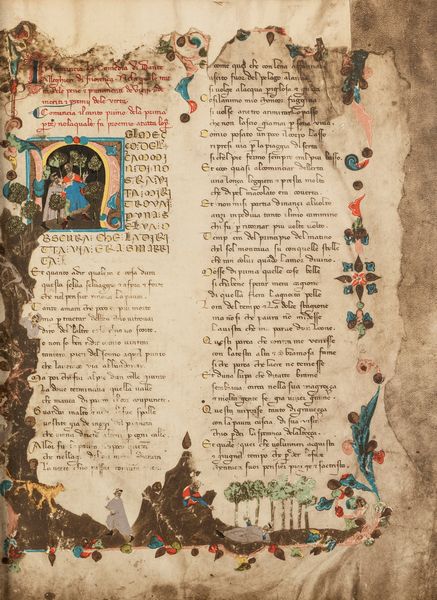 Incomincia la Comedia di Dante
Alleghieri di fiorença. Nela quale trac
ta dele pene et punimenti de vitii et de
meriti et premij dele vertu.
Comincia il canto primo dela prima
parte nelaquale fa prohemio a tutta lop
NEL MEÇ
ÇO DEL
CAMMI
N DI NO
STRA VI
TA MI RI
TROVAI
P UNA S
ELVA O
SCURA CHE LA DIRI
TTA VIA ERA SMARRI
TA
Et quanto adir qual era e cosa dura
questa selva selvaggia et aspra et forte
che nel pensier rinova la paura.
Tante amara che poco e piu morte
ma p tractar del ben chio vi trovai
diro del laltre cose chio vo scorte.
o non so ben ridir comio vintrai
tantera pien del sonno aquel punto
che la verace via abbandonai
Ma poi chi fui al pie dun colle giunto
La dove terminava quella valle
che mavea di paura il cor conpunto.
Guardai inalto et vidi le sue spalle
vestite gia de raggi del pianeta
che mena dricto altrui p ogni calle.
Allor fu la paura un poco queta
che nellago del cor mera durata
La nocte chio passai con tanta pieta
Et come quei che con lena affannata
uscito fuor del pelago alariva
si volge alacqua pigliosa et guata
Cosi lanimo mio chancor fuggiva
si volse aretro arimirar lo passo
che non lascio giamai persona viva.
Comio posato un poco il corpo lasso
ripresi via p la piaggia diserta
si chel pie fermo sempre era il piu basso.
Et ecco quasi alcominciar delerta
una lonça leggiera et presta molto
che di pel macolato era coverta.
Et non misi partia dinanzi alvolto
anzi inpediva tanto ilmio cammino
chi fu p ritornar piu volte volto.
Tempo era del principio del matino
el sol montava su con quelle stelle
che eran collui quando lamor divino.
Mosse di prima quelle cose belle
si chabene sperar mera cagione
di quella fiera lagaietta pelle
Lora del tempo et la dolce stagione
ma non si che paura no mi desse
La vista che mi parve dun Leone.
Questi parea che contra me venesse
con latesta alta et con rabbiosa fame
si che parea che laere ne temesse
Et duna lupa che di tutte brame
sembiava carca nella sua magreçça
et molta gente fe gia viver grame.
Questa mi porse tanto di graveçça
con la paura cuscia di sua vista
chio perde la sperança dela alteçça.
Et quale quei che volentieri acquista
et giugnel tempo che p der lo face
chentutti suoi pensier piange et sactrista.